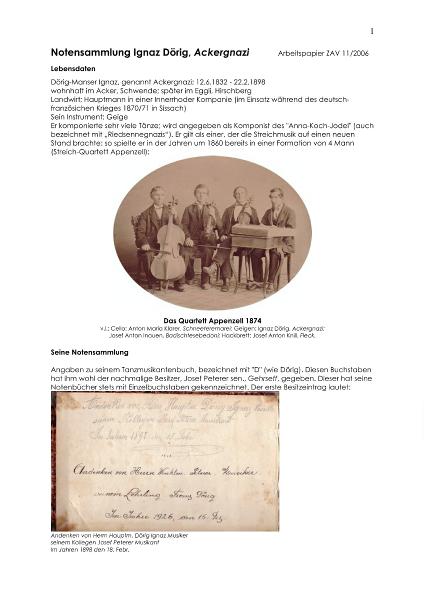 1
Notensammlung Ignaz Dörig, Ackergnazi Arbeitspapier ZAV 11/2006
Lebensdaten
Dörig-Manser Ignaz, genannt Ackergnazi: 12.6.1832 - 22.2.1898
wohnhaft im Acker, Schwende; später im Eggli, Hirschberg
Landwirt; Hauptmann in einer Innerrhoder Kompanie (im Einsatz während des deutsch-
französischen Krieges 1870/71 in Sissach)
Sein Instrument: Geige
Er komponierte sehr viele Tänze; wird angegeben als Komponist des "Anna-Koch-Jodel" (auch
bezeichnet mit „Riedsennegnazis"). Er gilt als einer, der die Streichmusik auf einen neuen
Stand brachte; so spielte er in der Jahren um 1860 bereits in einer Formation von 4 Mann
(Streich-Quartett Appenzell):
Das Quartett Appenzell 1874
v.l.: Cello: Anton Maria Klarer, Schneeteremarei; Geigen: Ignaz Dörig, Ackergnazi;
Josef Anton Inauen, Badischtesebedoni; Hackbrett: Josef Anton Knill, Fleck.
Seine Notensammlung
Angaben zu seinem Tanzmusikantenbuch, bezeichnet mit "D" (wie Dörig). Diesen Buchstaben
hat ihm wohl der nachmalige Besitzer, Josef Peterer sen., Gehrseff, gegeben. Dieser hat seine
Notenbücher stets mit Einzelbuchstaben gekennzeichnet. Der erste Besitzeintrag lautet:
Andenken von Herrn Hauptm. Dörig Ignaz Musiker
seinem Kollegen Josef Peterer Musikant
Im Jahren 1898 den 18. Febr.
Andenken von Herrn
seinem Lehrling Franz Dörig
Im Jahre 1926, den 15. Dez.
Andenken von Herrn Hauptm. Dörig Ignaz Musiker
seinem Kollegen Josef Peterer Musikant
Im Jahren 1898 den 18. Febr.